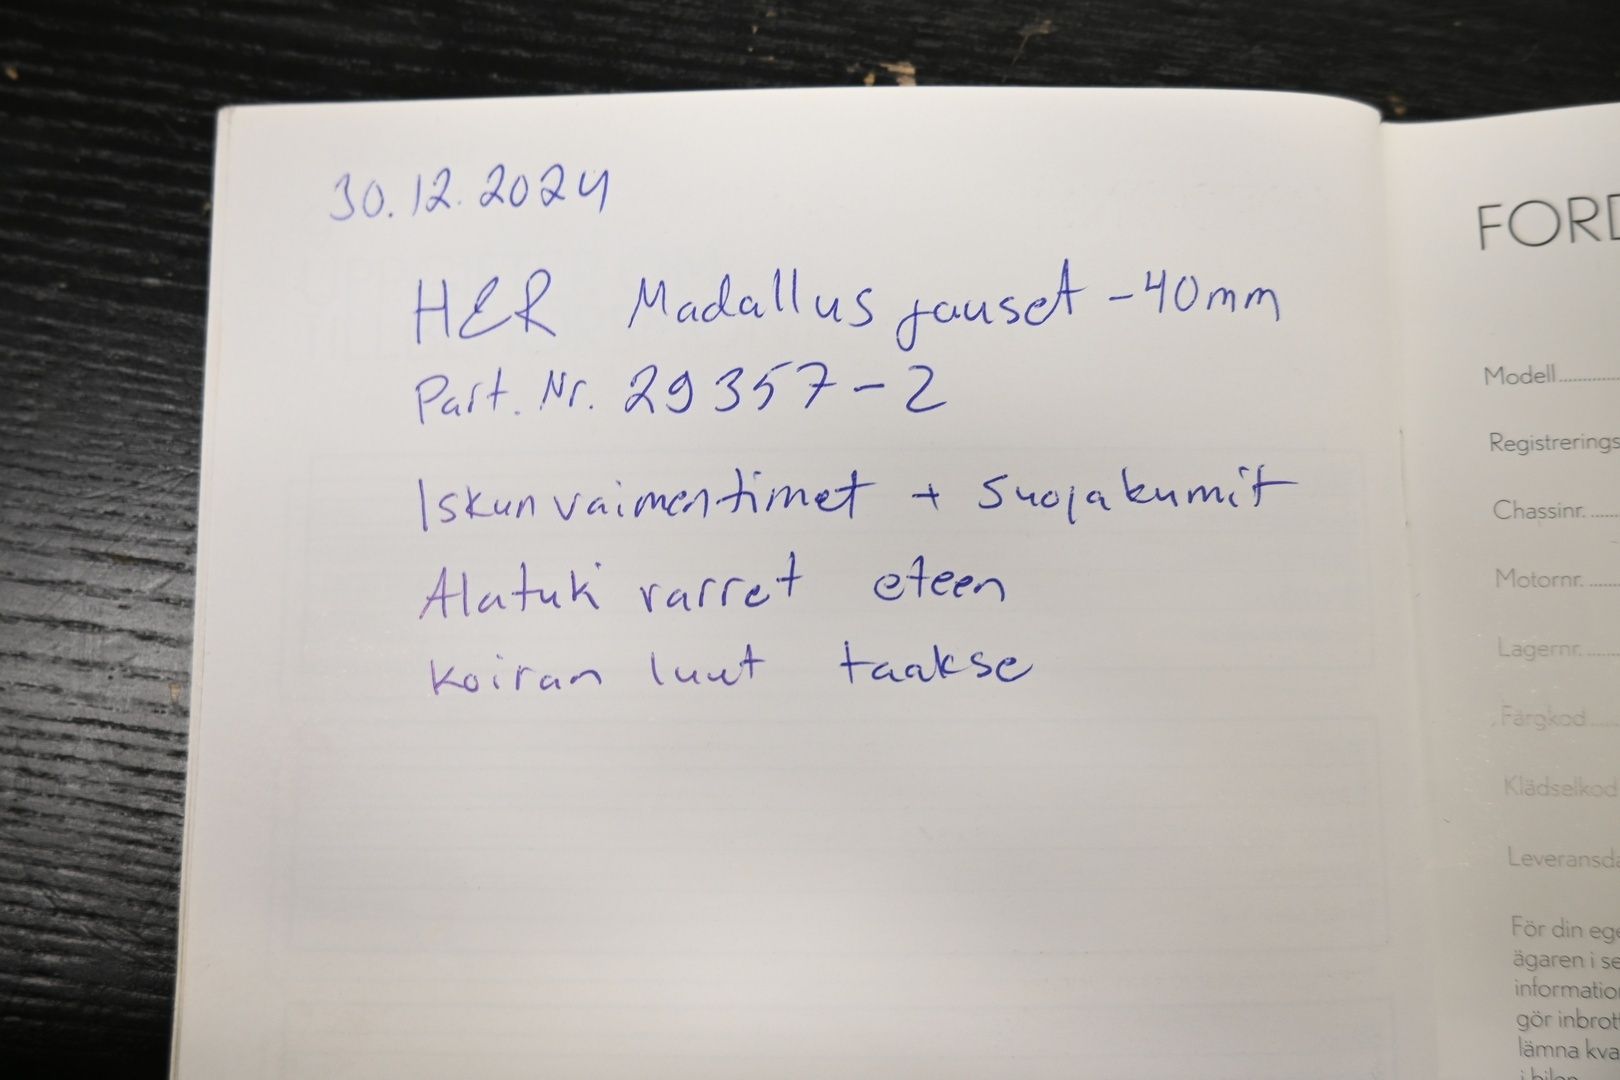 30.12.2024
H&R Madallus jouset -40mm
Part. Nr. 29357-2
Iskunvaimentimet + Suojakumit
Alatuki varret eteen
Koiran luut taakse
FORD
Modell
Registrerings
Chassinr.
Motornr.
Lagernr.
Färgkod
Klädselkod
Leveransda
För din ege
ägaren i se
information
gör inbrott
lämna kva
i bilen